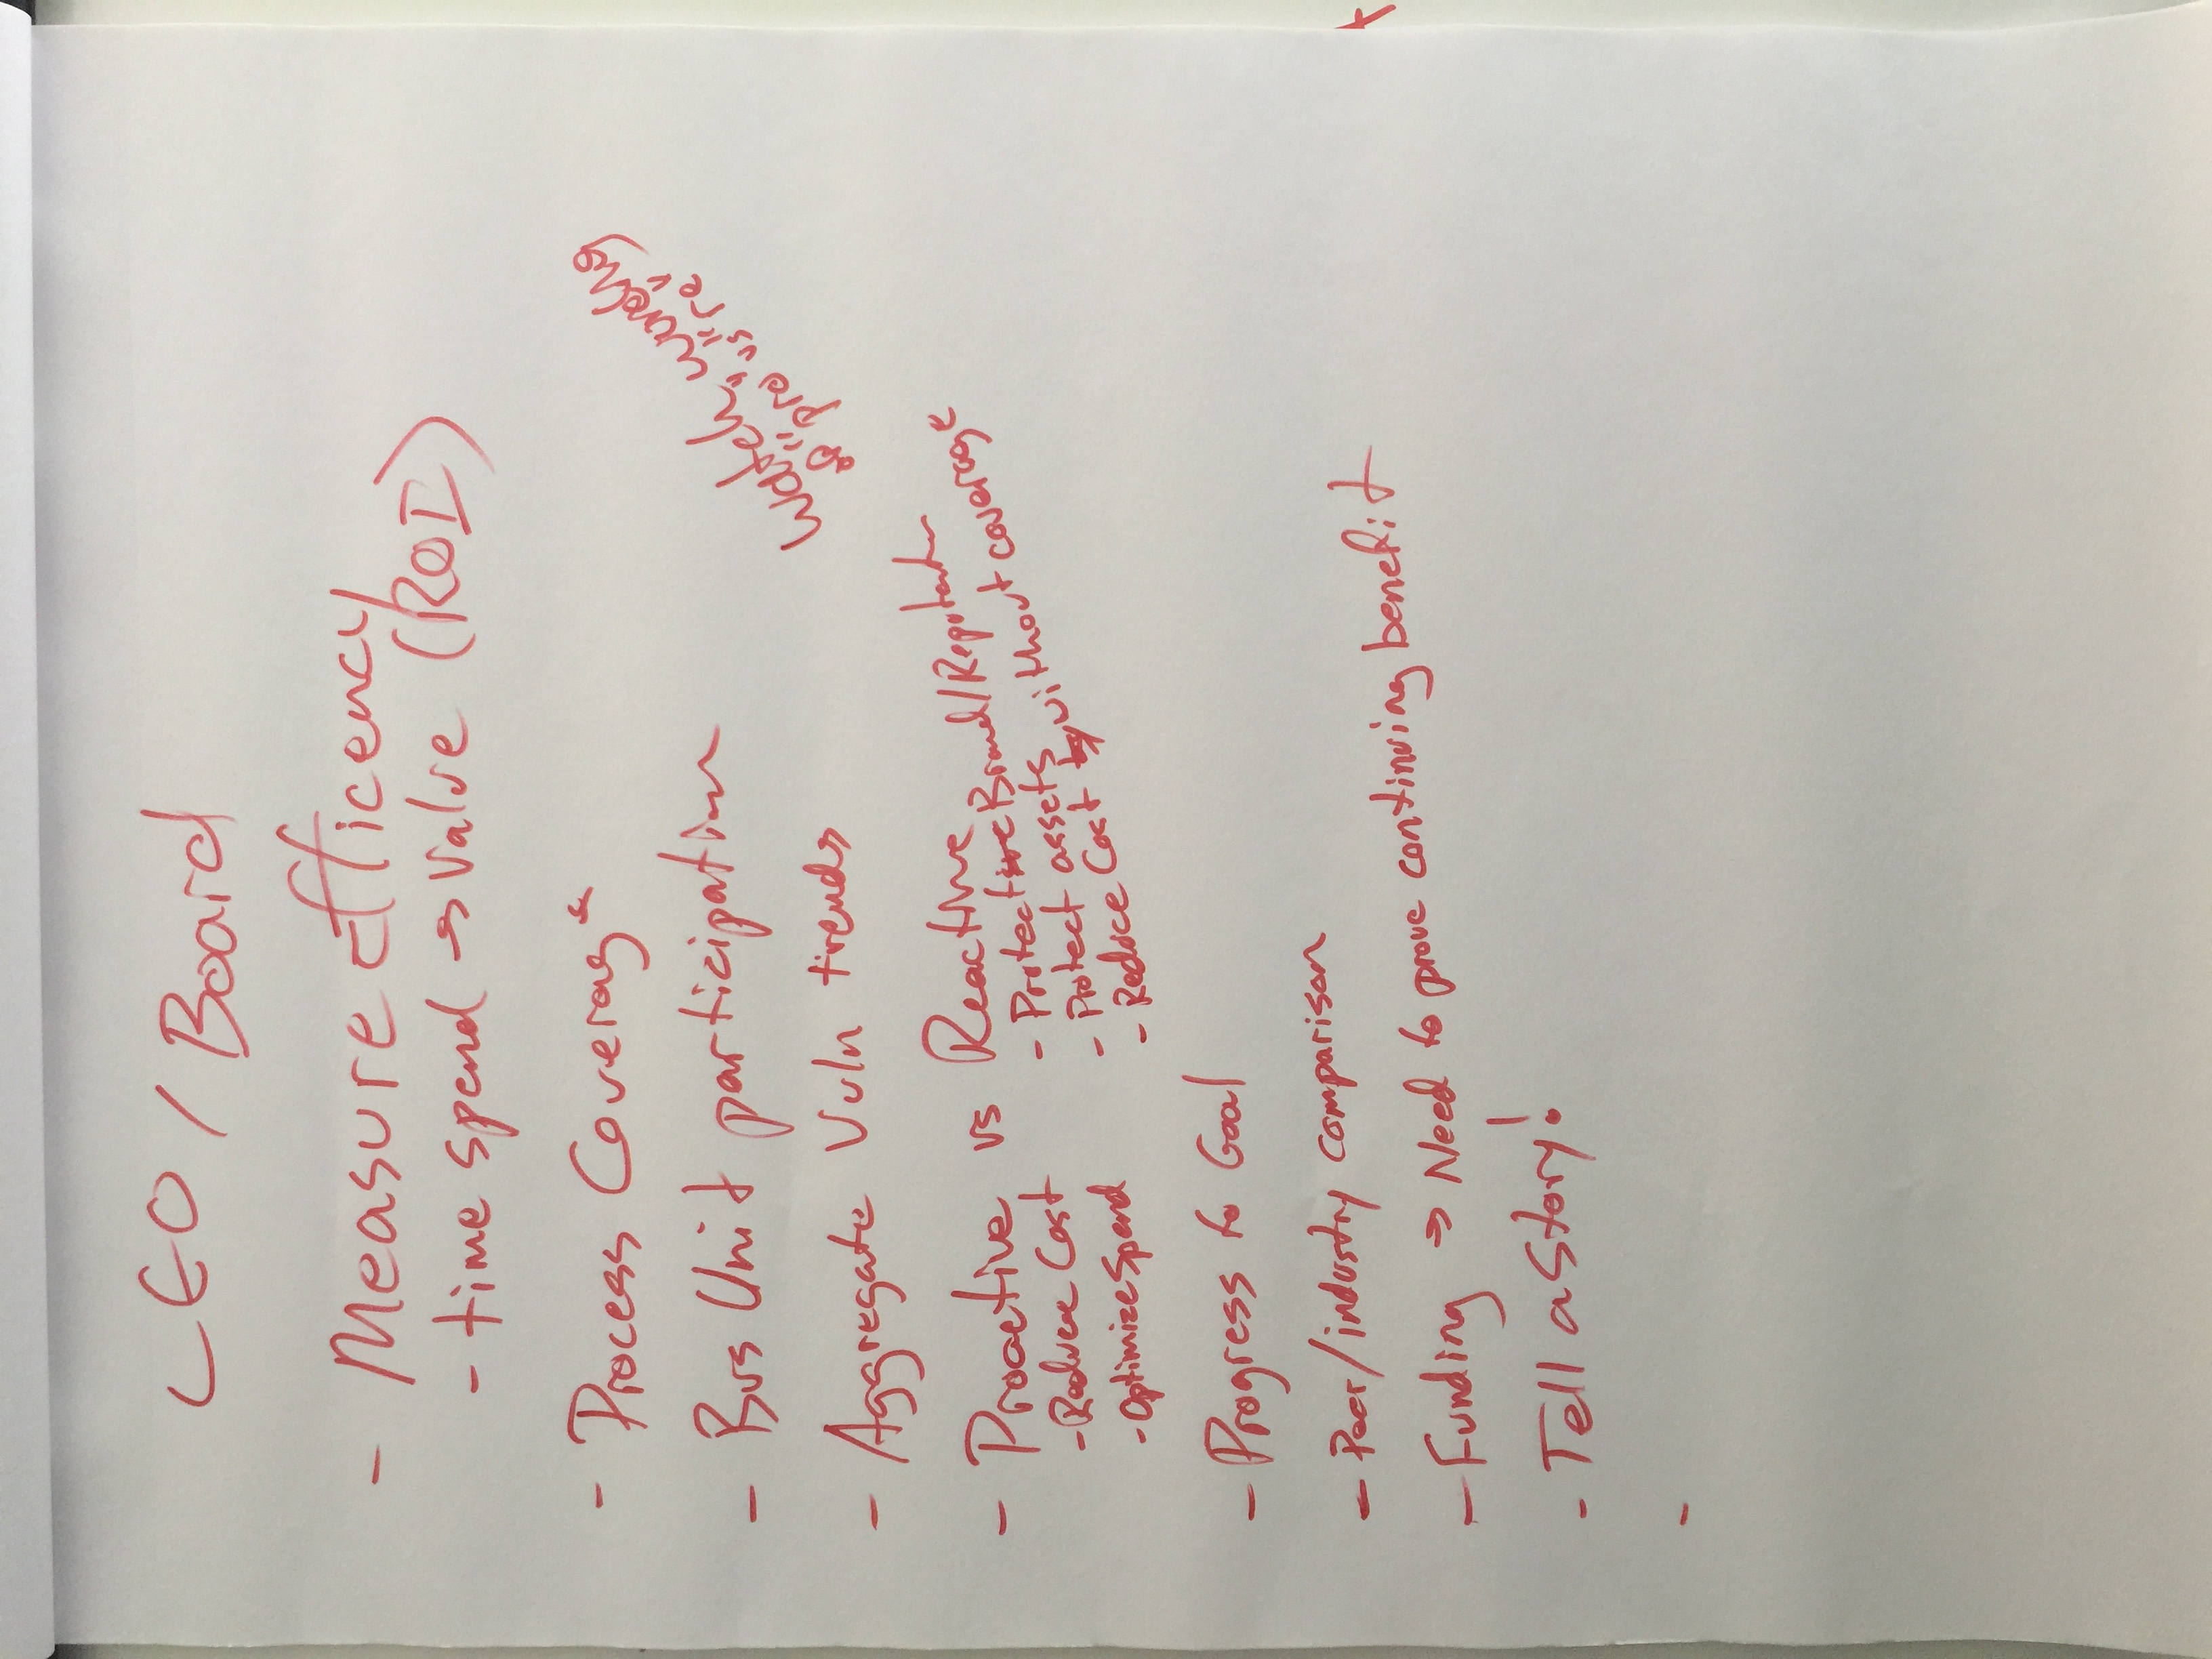 CEO / Board
- Measure Efficency
- time spend → Value (ROI)
- Process Coverage
- Bus Unit participation
Watch wording
of "pro" vs "re"
- Aggregate Vuln trends
- Proactive vs Reactive
- Reduce Cost
- Optimize Spend
- Protect Brand/Reputation
- Protect assets
- Reduce Cost without coverage
- Progress to Goal
- Peer/industry comparison
- Funding → Need to prove continuing benefit
- Tell a Story!
-